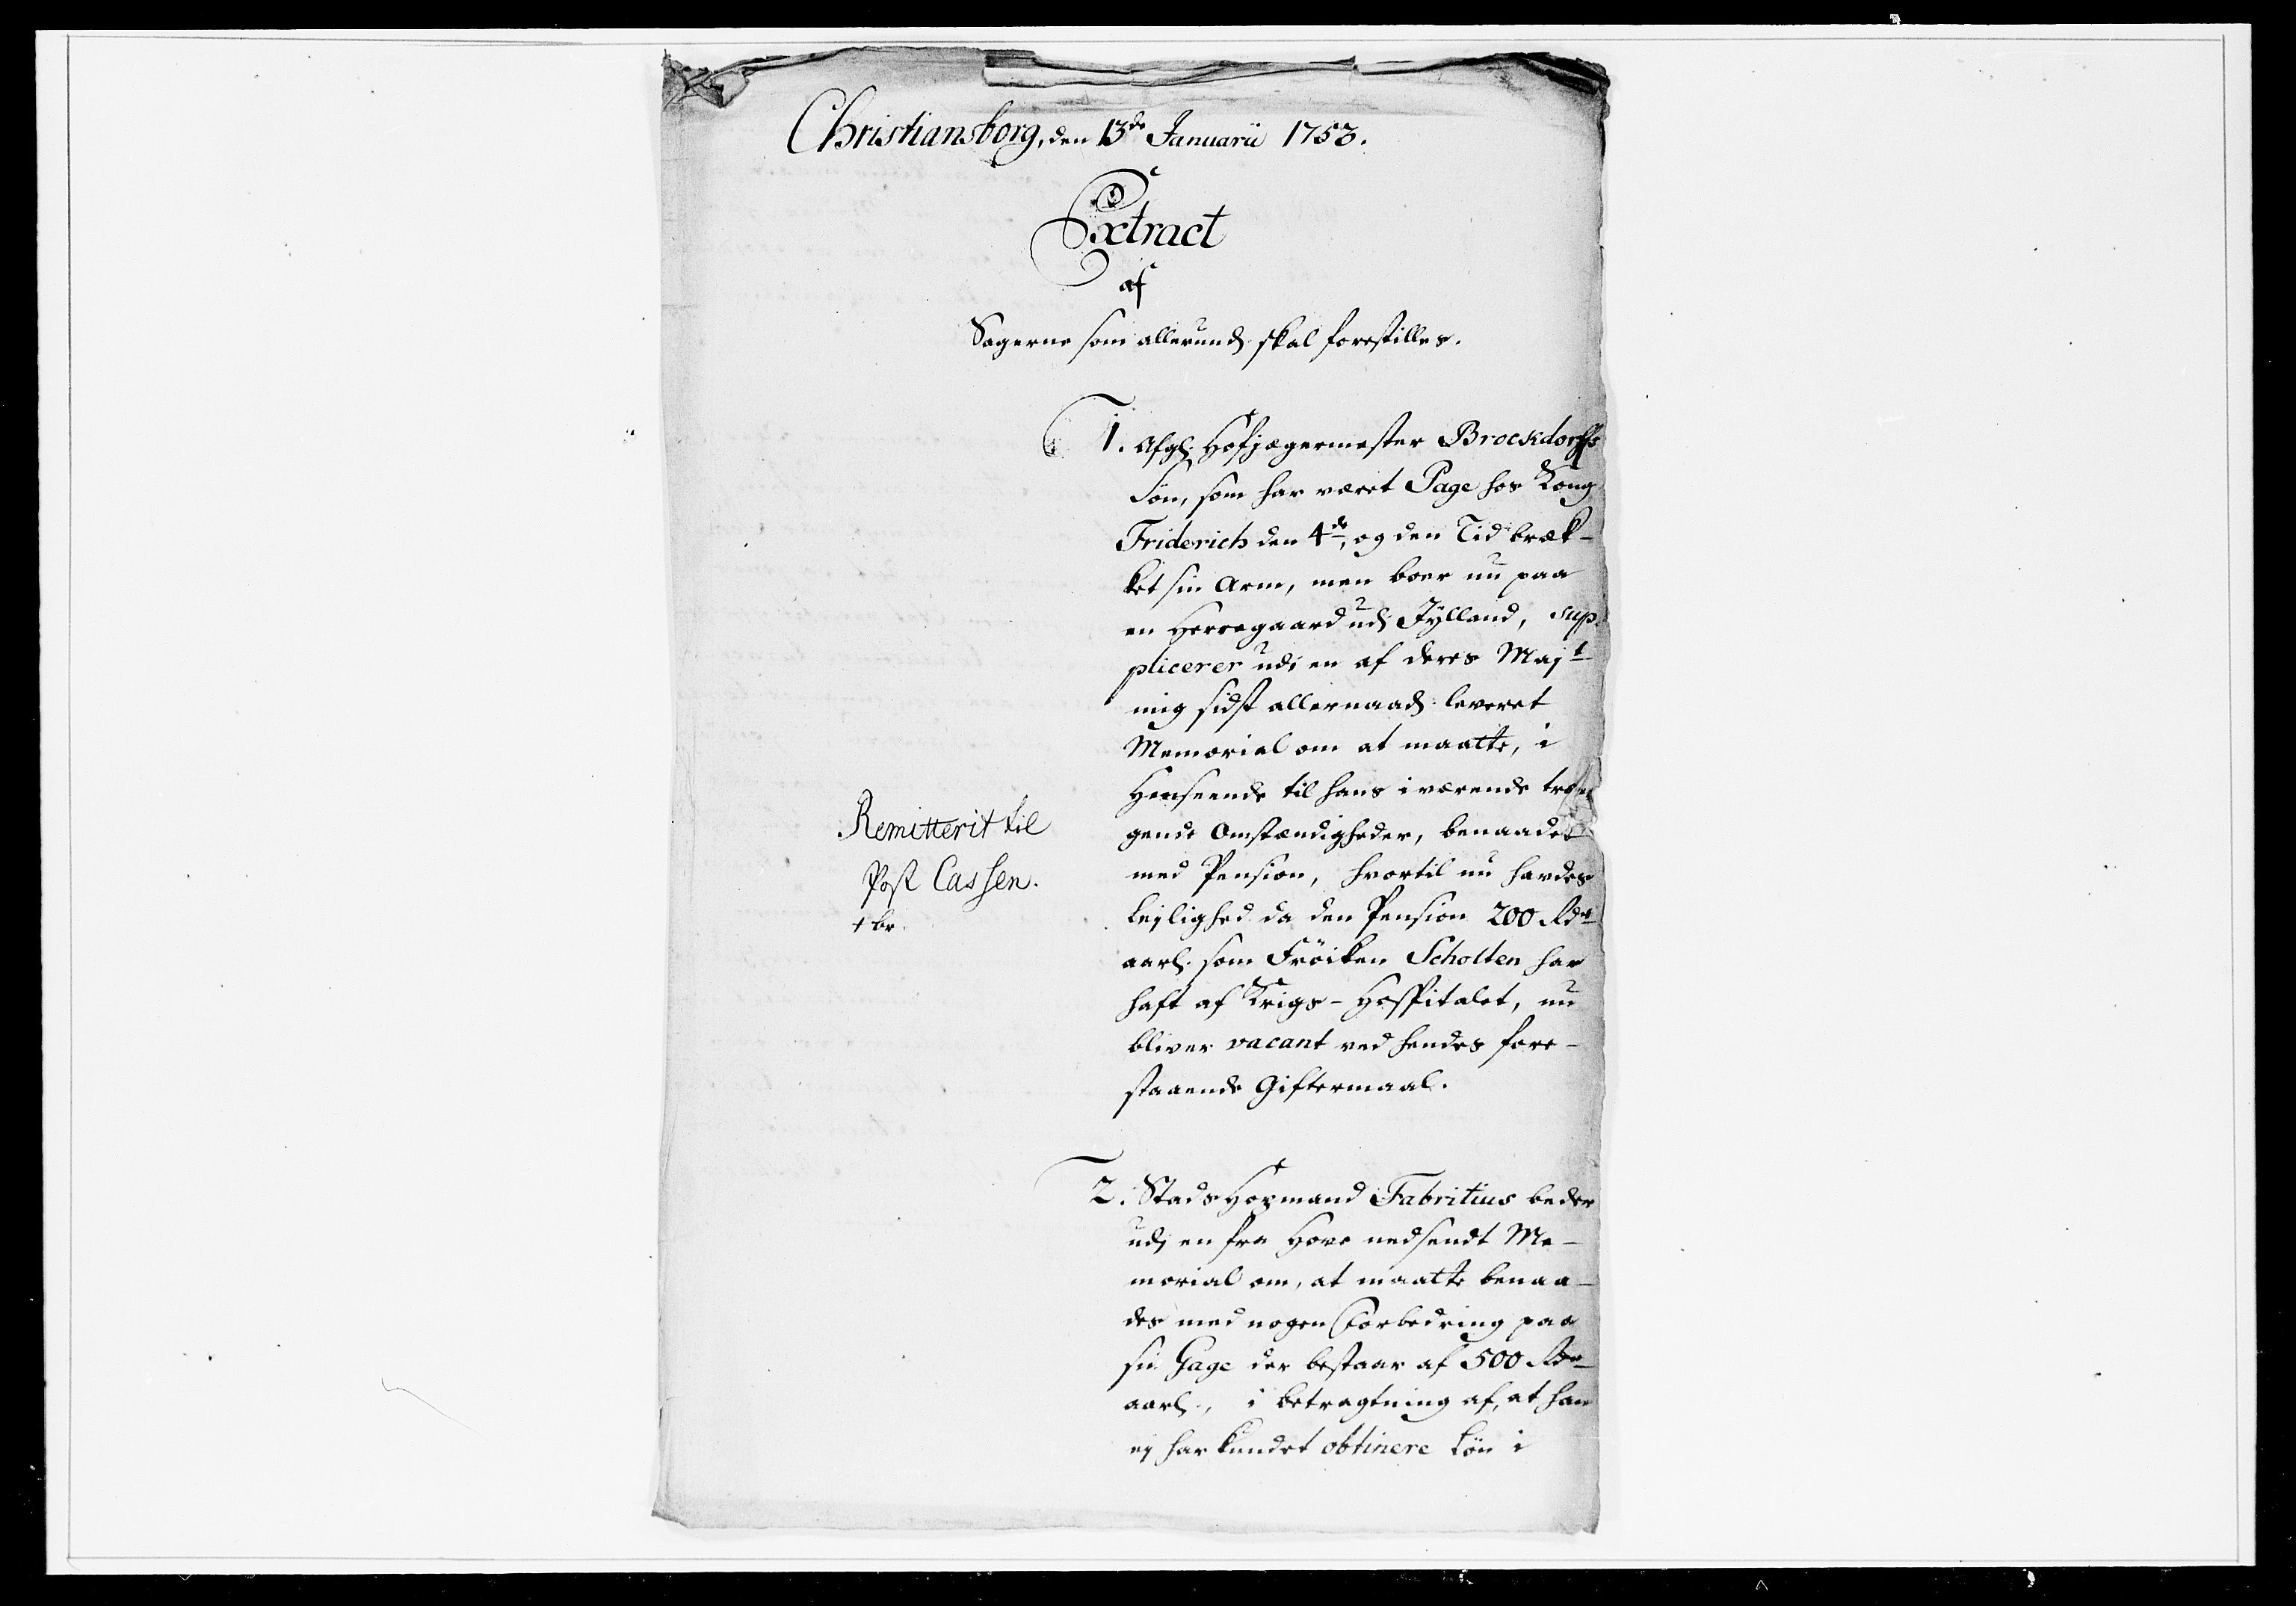 Christiansborg, den 13de Januarii 1753.
Extract
af
Sagerne som allerund. skal forestilles.
1. Afg. Hofjægermester Brockdorffs
Søn, som har været Page hos Kong
Friderich den 4de, og den Tid bræk-
ket sin Arm, men boer nu paa
en Herregaard udi Jylland, sup-
plicerer udi en af deres Majt
mig sidst allernaad. leveret
Memorial om at maatte, i
Henseende til hans iværende træn-
gende Omstændigheder, benaades
med Pension, hvortil nu havdes
Lejlighed da den Pension 200 Rdr
aarl. som Frøiken Scholten har
haft af Krigs-Hospitalet, nu
bliver vacant ved hendes fore-
staaende Giftermaal.
Remitterit til
Post Cassen.
2. Stads Hopmand Fabritius beder
udi en fra Hove nedsendt Me-
morial om, at maatte benaa-
des med nogen Forbedring paa
sin Gage der bestaar af 500 Rdr
aarl., i betragtning af, at han
ej har kundet obtinere Løn i